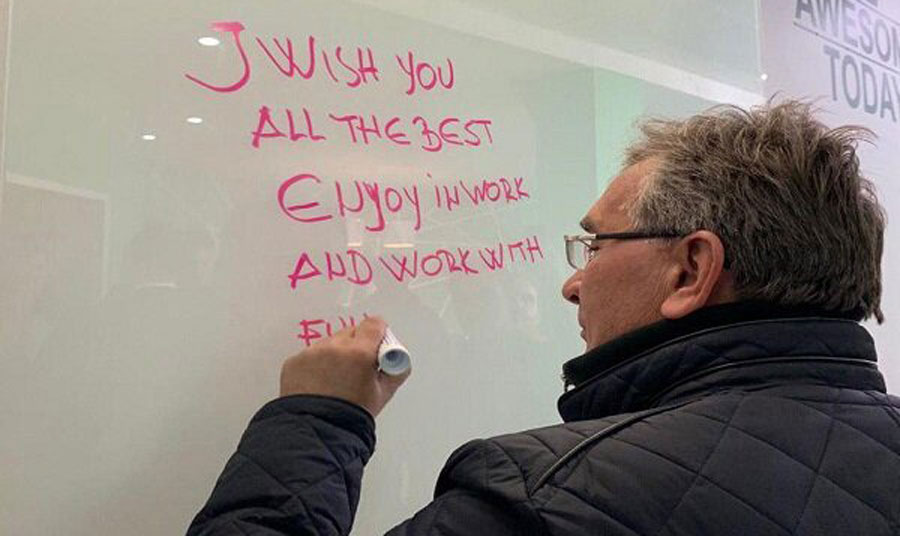 J WISH YOU
ALL THE BEST
ENJOY IN WORK
AND WORK WITH
AWESOM
TODAY